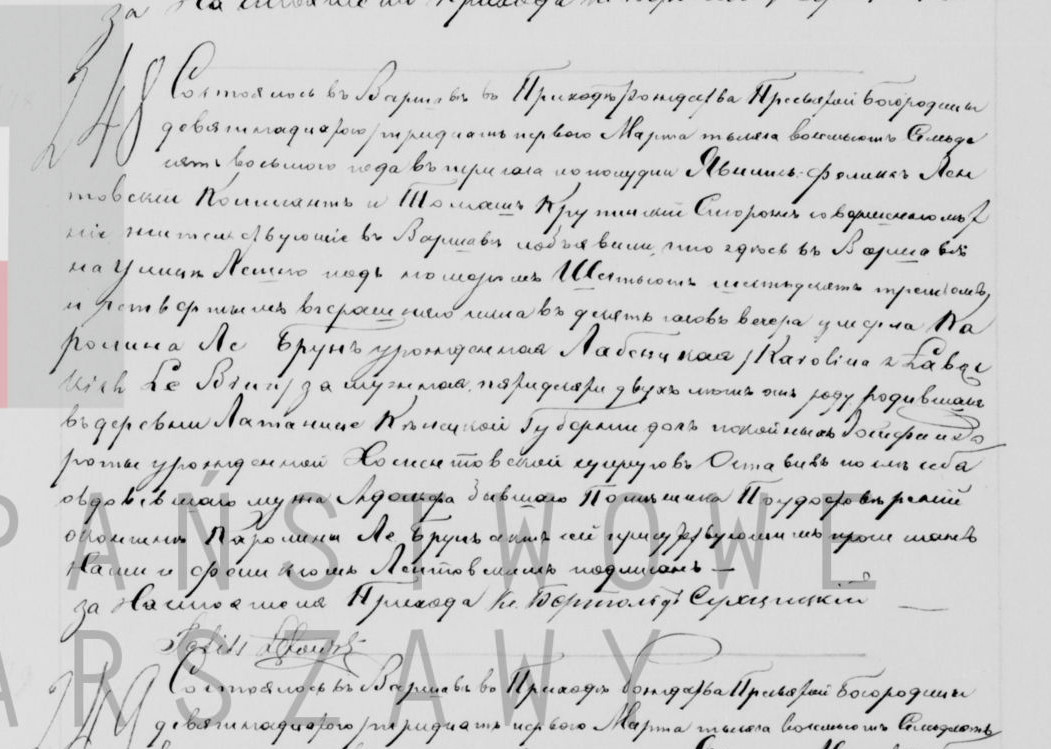 за Настоятеля Прихода
248 Состоялось въ Варшавѣ въ Приходѣ Рождества Пресвятой Богородицы
девятнадцатого/тридцать перваго Марта тысяча восемьсотъ Семьде
сятъ восьмого года въ три часа пополудни Явились Феликсъ Лен
товскій и Томашъ Крупинскій Сторожъ совершеннолѣт
ніе жительствующіе въ Варшавѣ и объявили, что здѣсь въ Варшавѣ
на улицѣ Лешно подъ номеромъ Шестьсотъ шестьдесятъ
и четвертымъ вчерашняго числа въ десять часовъ вечера умерла Ка
ролина Ле Брунъ урожденная Лабенцкая /Karolina z Łabęc
kich Le Brun/ замужняя, тридцати двухъ лѣтъ отъ роду родившаяся
въ деревни Латанице Кѣлецкой Губерніи дочь покойныхъ Іосифа и До
роты урожденной супруговъ Оставивъ по себѣ
овдовѣвшаго мужа Адольфа бывшаго Помѣщика По удостовѣреніи
о кончинѣ Каролины Ле Брунъ актъ сей присутствующимъ прочитанъ
Нами и Феликсомъ Лентовскимъ подписанъ —
за Настоятеля Прихода Кс.
Feliks
PAŃSTWOWE
WARSZAWY
249 Состоялось въ Варшавѣ въ Приходѣ Рождества Пресвятой Богородицы
девятнадцатого/тридцать перваго Марта тысяча восемьсотъ Семьдесятъ